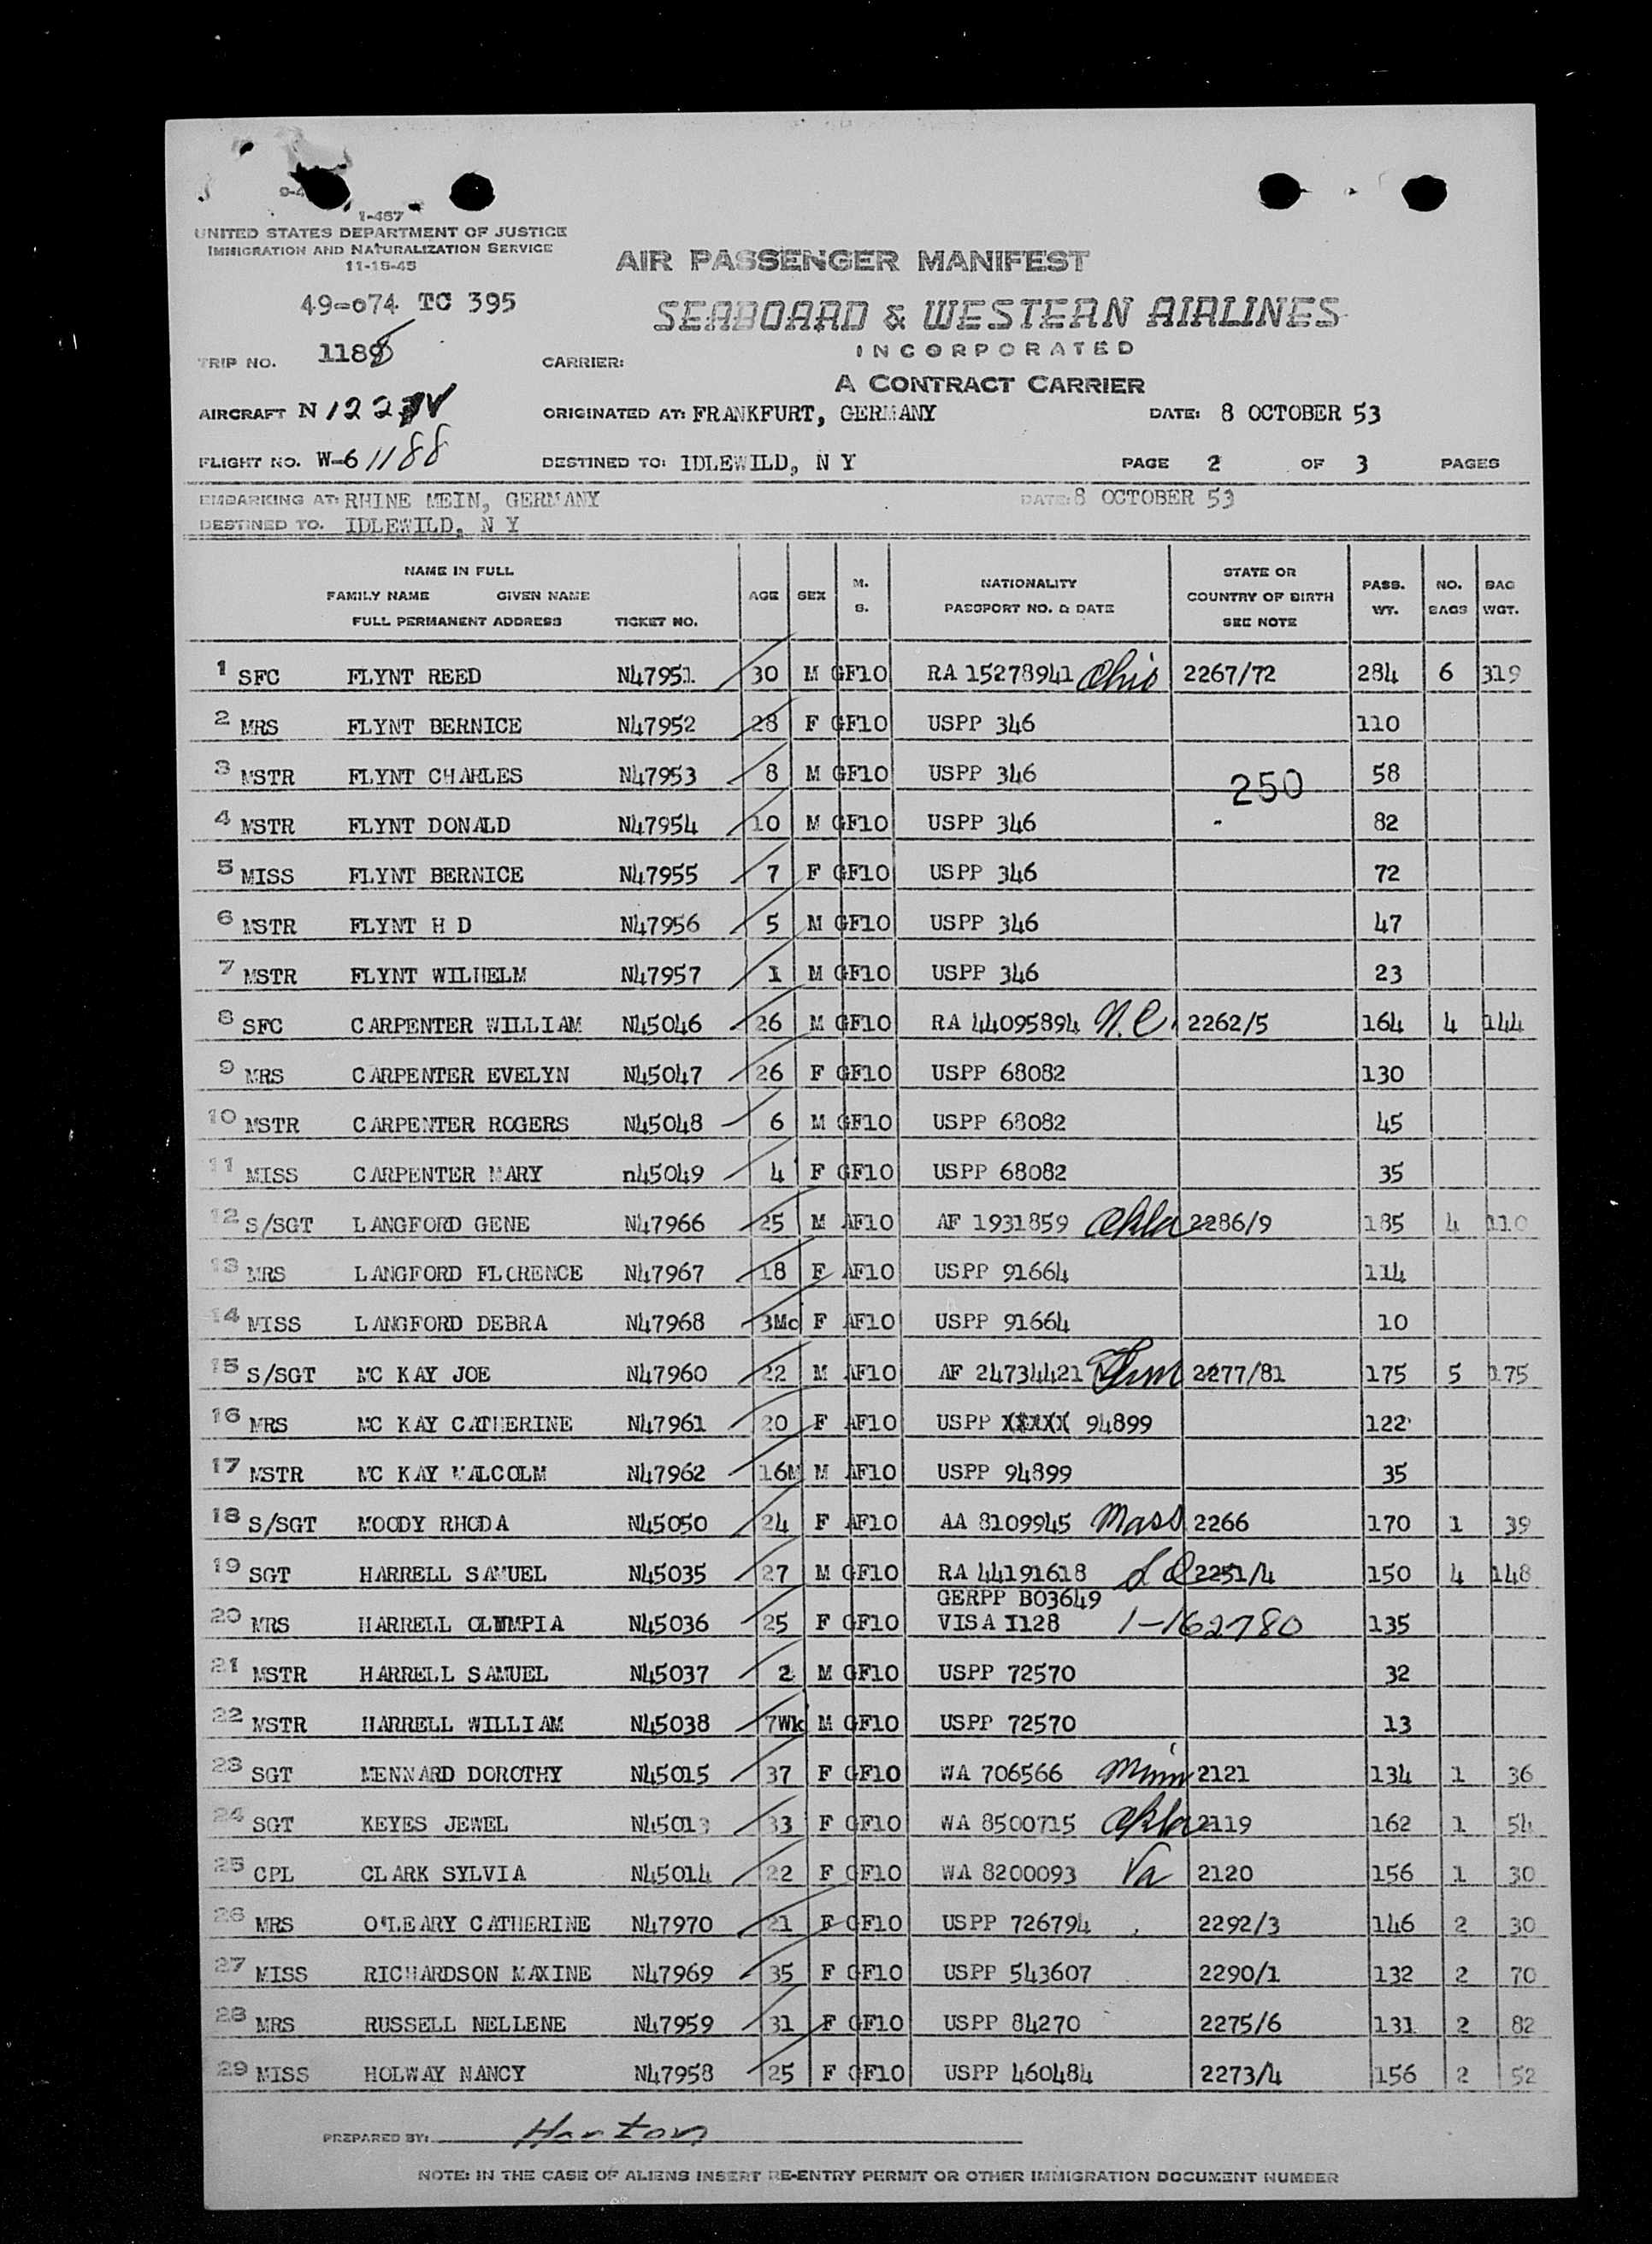 1-467
UNITED STATES DEPARTMENT OF JUSTICE
IMMIGRATION AND NATURALIZATION SERVICE
11-15-45
AIR PASSENGER MANIFEST
49-074 TC 395
SEABOARD & WESTERN AIRLINES
INCORPORATED
TRIP NO. 1188 CARRIER:
A CONTRACT CARRIER
AIRCRAFT N ORIGINATED AT: FRANKFURT, GERMANY DATE: 8 OCTOBER 53
FLIGHT NO. W-6 1188 DESTINED TO: IDLEWILD, N Y PAGE 2 OF 3 PAGES
EMBARKING AT: RHINE MEIN, GERMANY DATE: 8 OCTOBER 53
DESTINED TO. IDLEWILD, N Y
NAME IN FULL
FAMILY NAME GIVEN NAME
FULL PERMANENT ADDRESS TICKET NO. AGE SEX M. S. NATIONALITY PASSPORT NO. & DATE STATE OR COUNTRY OF BIRTH SEE NOTE PASS. WT. NO. BAGS BAG WGT.
1 SFC FLYNT REED N47951 30 M GF10 RA 15278941 Ohio 2267/72 284 6 319
2 MRS FLYNT BERNICE N47952 28 F GF10 USPP 346 110
3 MSTR FLYNT CHARLES N47953 8 M GF10 USPP 346 250 58
4 MSTR FLYNT DONALD N47954 10 M GF10 USPP 346 82
5 MISS FLYNT BERNICE N47955 7 F GF10 USPP 346 72
6 MSTR FLYNT H D N47956 5 M GF10 USPP 346 47
7 MSTR FLYNT WILHELM N47957 1 M GF10 USPP 346 23
8 SFC CARPENTER WILLIAM N45046 26 M GF10 RA 44095894 N.C. 2262/5 164 4 144
9 MRS CARPENTER EVELYN N45047 26 F GF10 USPP 68082 130
10 MSTR CARPENTER ROGERS N45048 6 M GF10 USPP 68082 45
11 MISS CARPENTER MARY n45049 4 F GF10 USPP 68082 35
12 S/SGT LANGFORD GENE N47966 25 M AF10 AF 1931859 Okla 2286/9 185 4 110
13 MRS LANGFORD FLORENCE N47967 18 F AF10 USPP 91664 114
14 MISS LANGFORD DEBRA N47968 3Mo F AF10 USPP 91664 10
15 S/SGT MC KAY JOE N47960 22 M AF10 AF 24734421 2277/81 175 5 175
16 MRS MC KAY CATHERINE N47961 20 F AF10 USPP XXXXX 94899 122
17 MSTR MC KAY MALCOLM N47962 16M M AF10 USPP 94899 35
18 S/SGT MOODY RHODA N45050 24 F AF10 AA 8109945 Mass 2266 170 1 39
19 SGT HARRELL SAMUEL N45035 27 M GF10 RA 44191618 2251/4 150 4 148
GERPP BO3649
20 MRS HARRELL OLYMPIA N45036 25 F GF10 VISA I128 1-162780 135
21 MSTR HARRELL SAMUEL N45037 2 M GF10 USPP 72570 32
22 MSTR HARRELL WILLIAM N45038 7Wk M GF10 USPP 72570 13
23 SGT MENNARD DOROTHY N45015 37 F GF10 WA 706566 Minn 2121 134 1 36
24 SGT KEYES JEWEL N45013 33 F GF10 WA 8500715 Okla 2119 162 1 54
25 CPL CLARK SYLVIA N45014 22 F GF10 WA 8200093 Va 2120 156 1 30
26 MRS O'LEARY CATHERINE N47970 21 F GF10 USPP 726794 2292/3 146 2 30
27 MISS RICHARDSON MAXINE N47969 35 F GF10 USPP 543607 2290/1 132 2 70
28 MRS RUSSELL NELLENE N47959 31 F GF10 USPP 84270 2275/6 131 2 82
29 MISS HOLWAY NANCY N47958 25 F GF10 USPP 460484 2273/4 156 2 52
PREPARED BY: Horton
NOTE: IN THE CASE OF ALIENS INSERT RE-ENTRY PERMIT OR OTHER IMMIGRATION DOCUMENT NUMBER